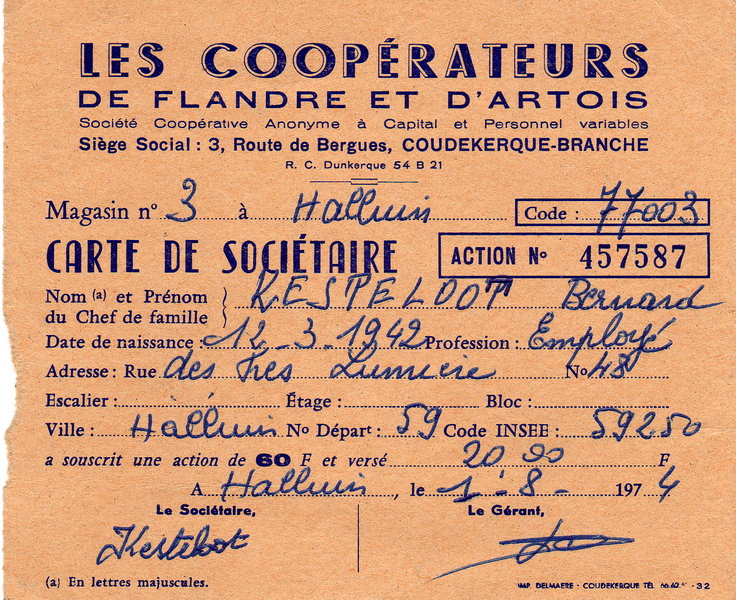 LES COOPÉRATEURS
DE FLANDRE ET D'ARTOIS
Société Coopérative Anonyme à Capital et Personnel variables
Siège Social : 3, Route de Bergues, COUDEKERQUE-BRANCHE
R. C. Dunkerque 54 B 21
Magasin n° 3 à Halluin Code : 77003
CARTE DE SOCIÉTAIRE ACTION No 457587
Nom (a) et Prénom du Chef de famille } KESTELOOT Bernard
Date de naissance : 12-3-1942 Profession : Employé
Adresse : Rue des Lumière No 48
Escalier : Étage : Bloc :
Ville : Halluin No Départ : 59 Code INSEE : 59250
a souscrit une action de 60 F et versé 20 F
A Halluin, le 1-8-1974
Le Sociétaire, Le Gérant,
Kesteloot
(a) En lettres majuscules. IMP. DELMAERE - COUDEKERQUE TÉL. - 32